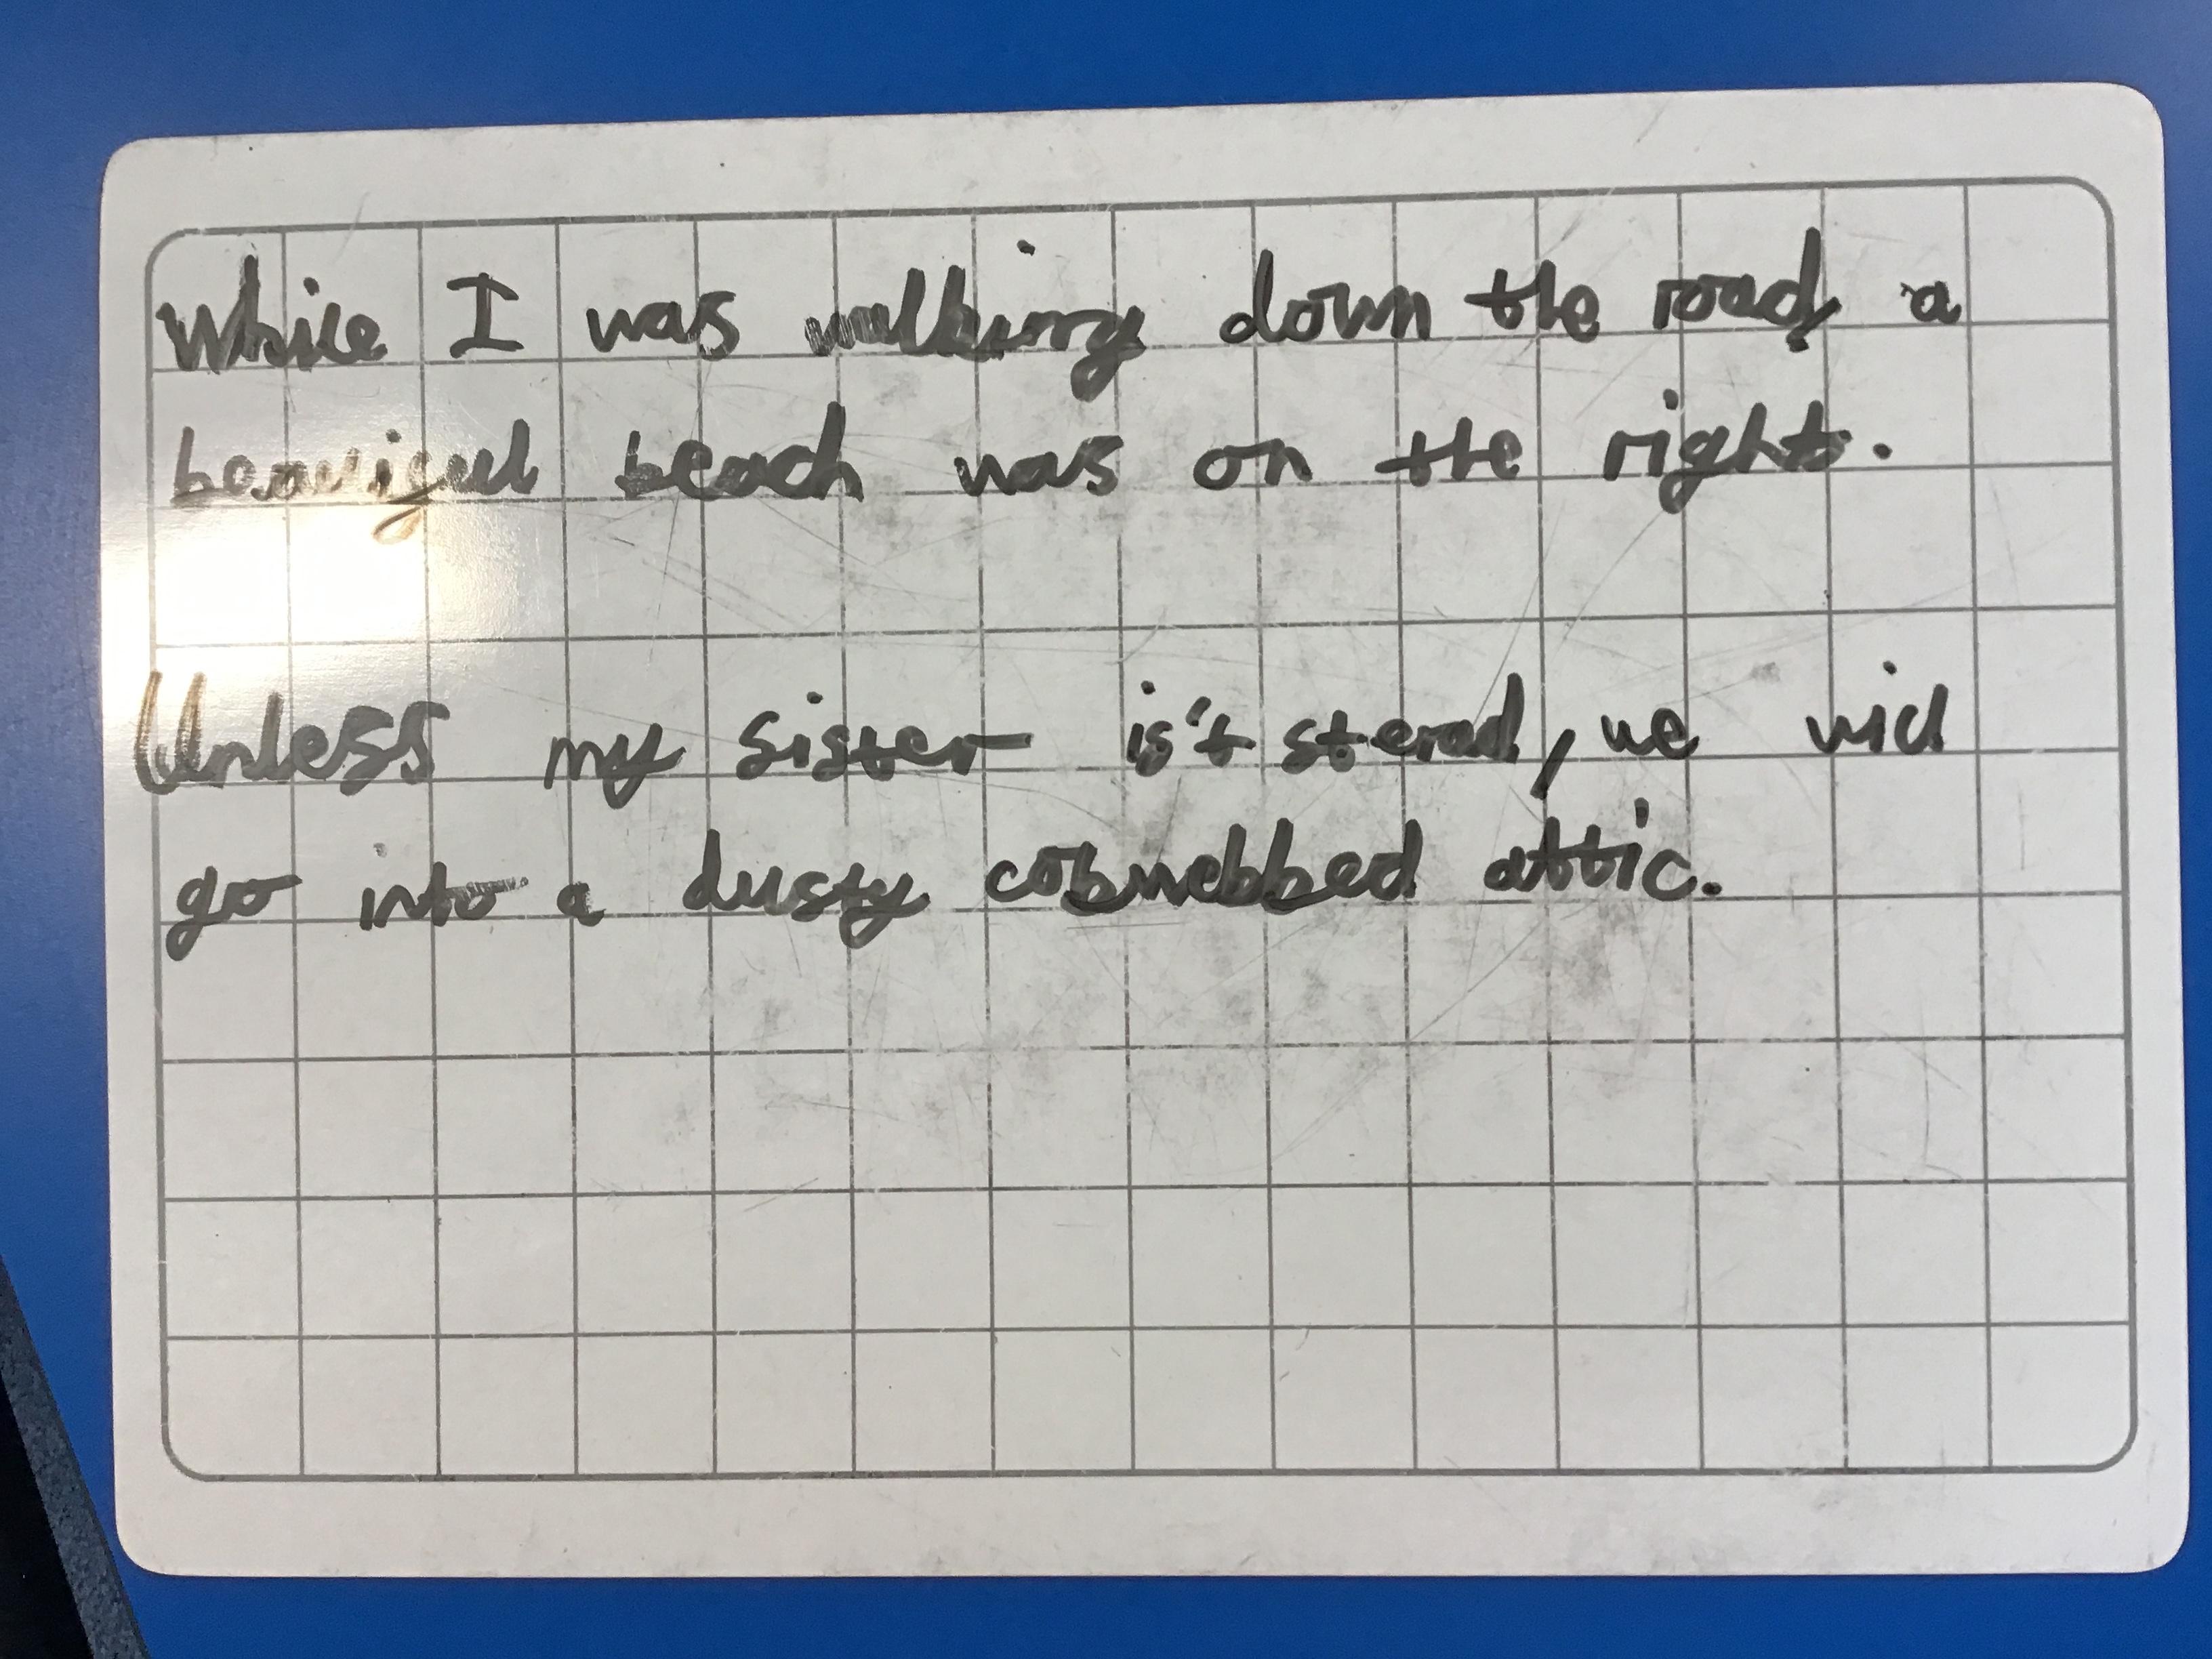 While I was walking down the road, a
beautiful beach was on the right.
Unless my sister is't, we will
go into a dusty cobwebbed attic.